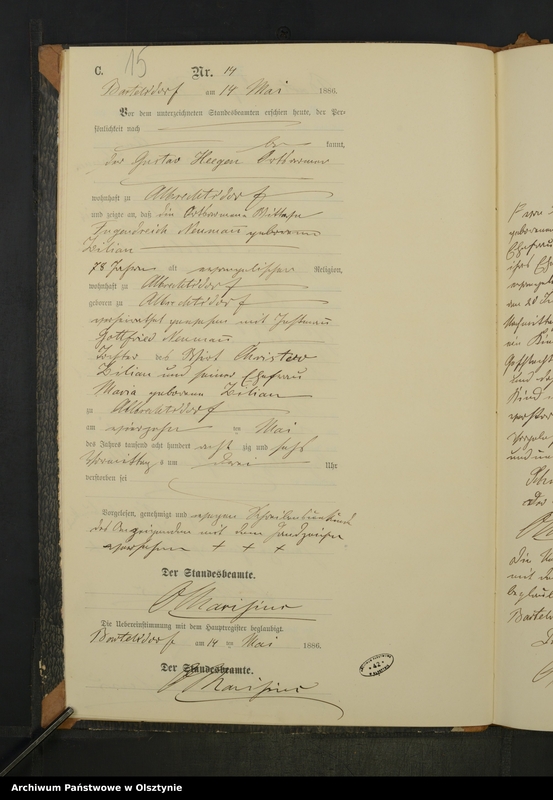 C. 15 Nr. 14
Bartelsdorf am 14 Mai 1886.
Vor dem unterzeichneten Standesbeamten erschien heute, der Per-
sönlichkeit nach
be kannt,
der Gustav Heegen Ortsarmer
wohnhaft zu Albrechtsdorf
und zeigte an, daß die Ortsarme Wittwe
Neumann geborene
Zilian
78 Jahre alt evangelischer Religion,
wohnhaft zu Albrechtsdorf
geboren zu Albrechtsdorf
verheirathet gewesen mit Instmann
Gottfried Neumann
Tochter des Wirt Christow
Zilian und seiner Ehefrau
Maria geborene Zilian
zu Albrechtsdorf
am vierzehn ten Mai
des Jahres tausend acht hundert acht zig und sechs
Vormittags um drei Uhr
verstorben sei
Vorgelesen, genehmigt und wegen Schreibensunkunde
des Anzeigenden mit dem Handzeichen
versehen + + +
Der Standesbeamte.
Die Uebereinstimmung mit dem Hauptregister beglaubigt.
Bartelsdorf am 14 ten Mai 1886.
Der Standesbeamte.
Archiwum Państwowe w Olsztynie